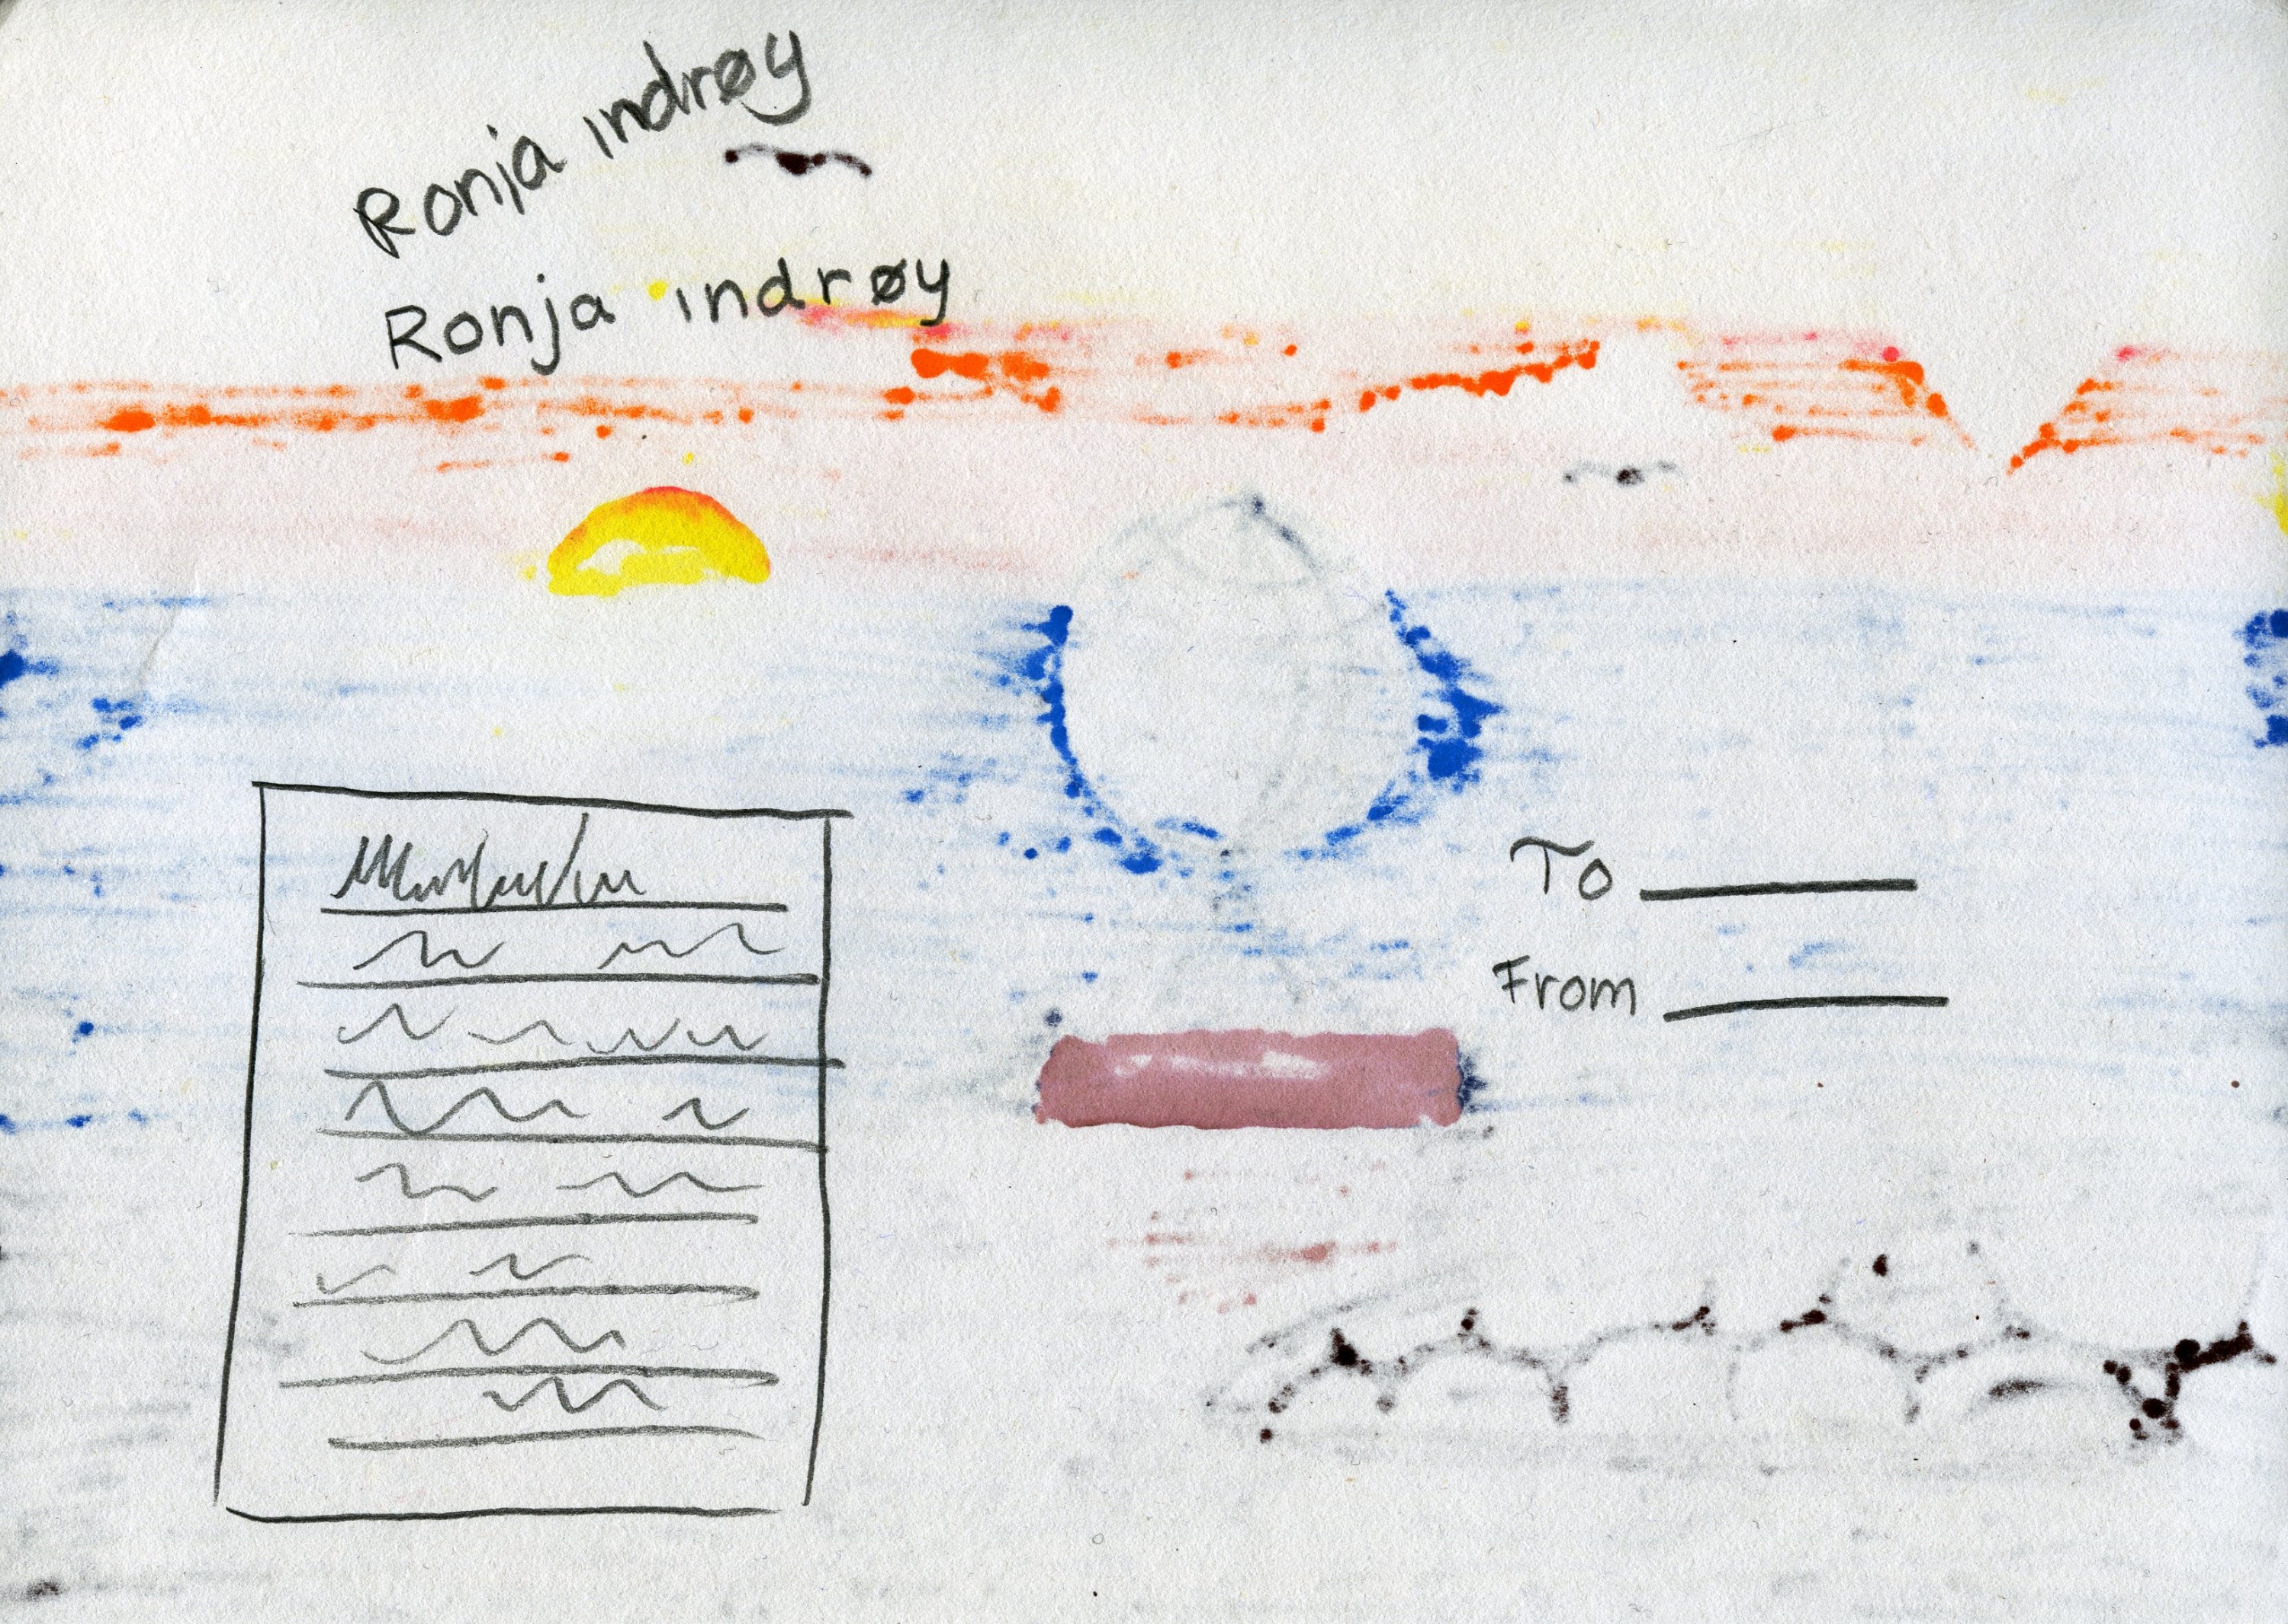 Ronja indrøy
Ronja indrøy
To
From